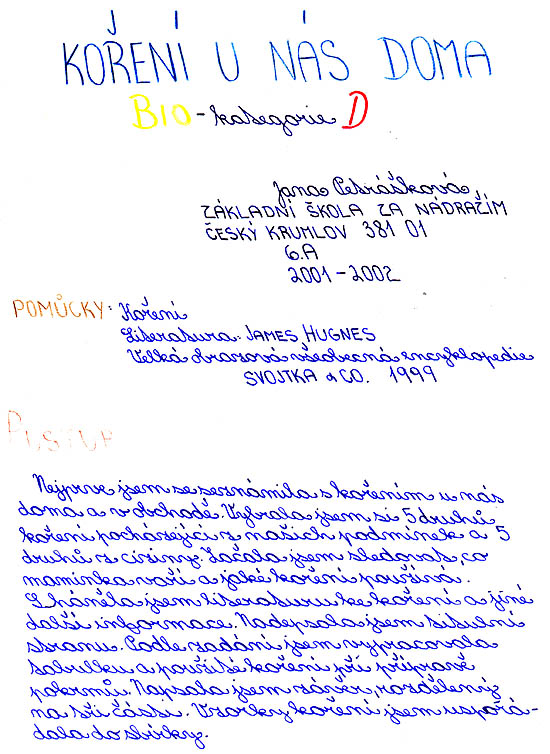 KOŘENÍ U NÁS DOMA
BIO - kategorie D
Jana Petrášková
ZÁKLADNÍ ŠKOLA ZA NÁDRAŽÍM
ČESKÝ KRUMLOV 381 01
6.A
2001 - 2002
POMŮCKY: Koření
Literatura: JAMES HUGNES
Velká obrazová všeobecná encyklopedie
SVOJTKA & CO. 1999
POSTUP
Nejprve jsem se seznámila s kořením u nás
doma a v obchodě. Vybrala jsem si 5 druhů
koření pocházející z našich podmínek a 5
druhů z ciziny. Začala jsem sledovat, co
maminka vaří a jaké koření používá.
Sháněla jsem literaturu ke koření a jiné
další informace. Nadepsala jsem titulní
stranu. Podle zadání jsem vypracovala
tabulku a použité koření při přípravě
pokrmů. Napsala jsem závěr, rozdělený
na tři části. Vzorky koření jsem uspořá-
dala do sbírky.